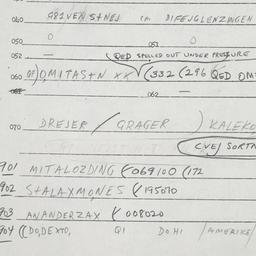 040 GBLVEN S+NEJ IM DIFEJGLENZINGEN
050 0 051 0
052 — (QED SPELLED OUT UNDER PRESSURE
060 OMITAS+N XX (332 (296 QED OM
062 —
070 DREJER / GRAGER ) KALEKO
(CVEJ SORTN
901 MITALOZDING (069100 (172
902 S+ALAXMONES (195070
903 ANANDERZAX ( 008020
904 ((DO,DEXTO, QI DOHI /AMERIKE/